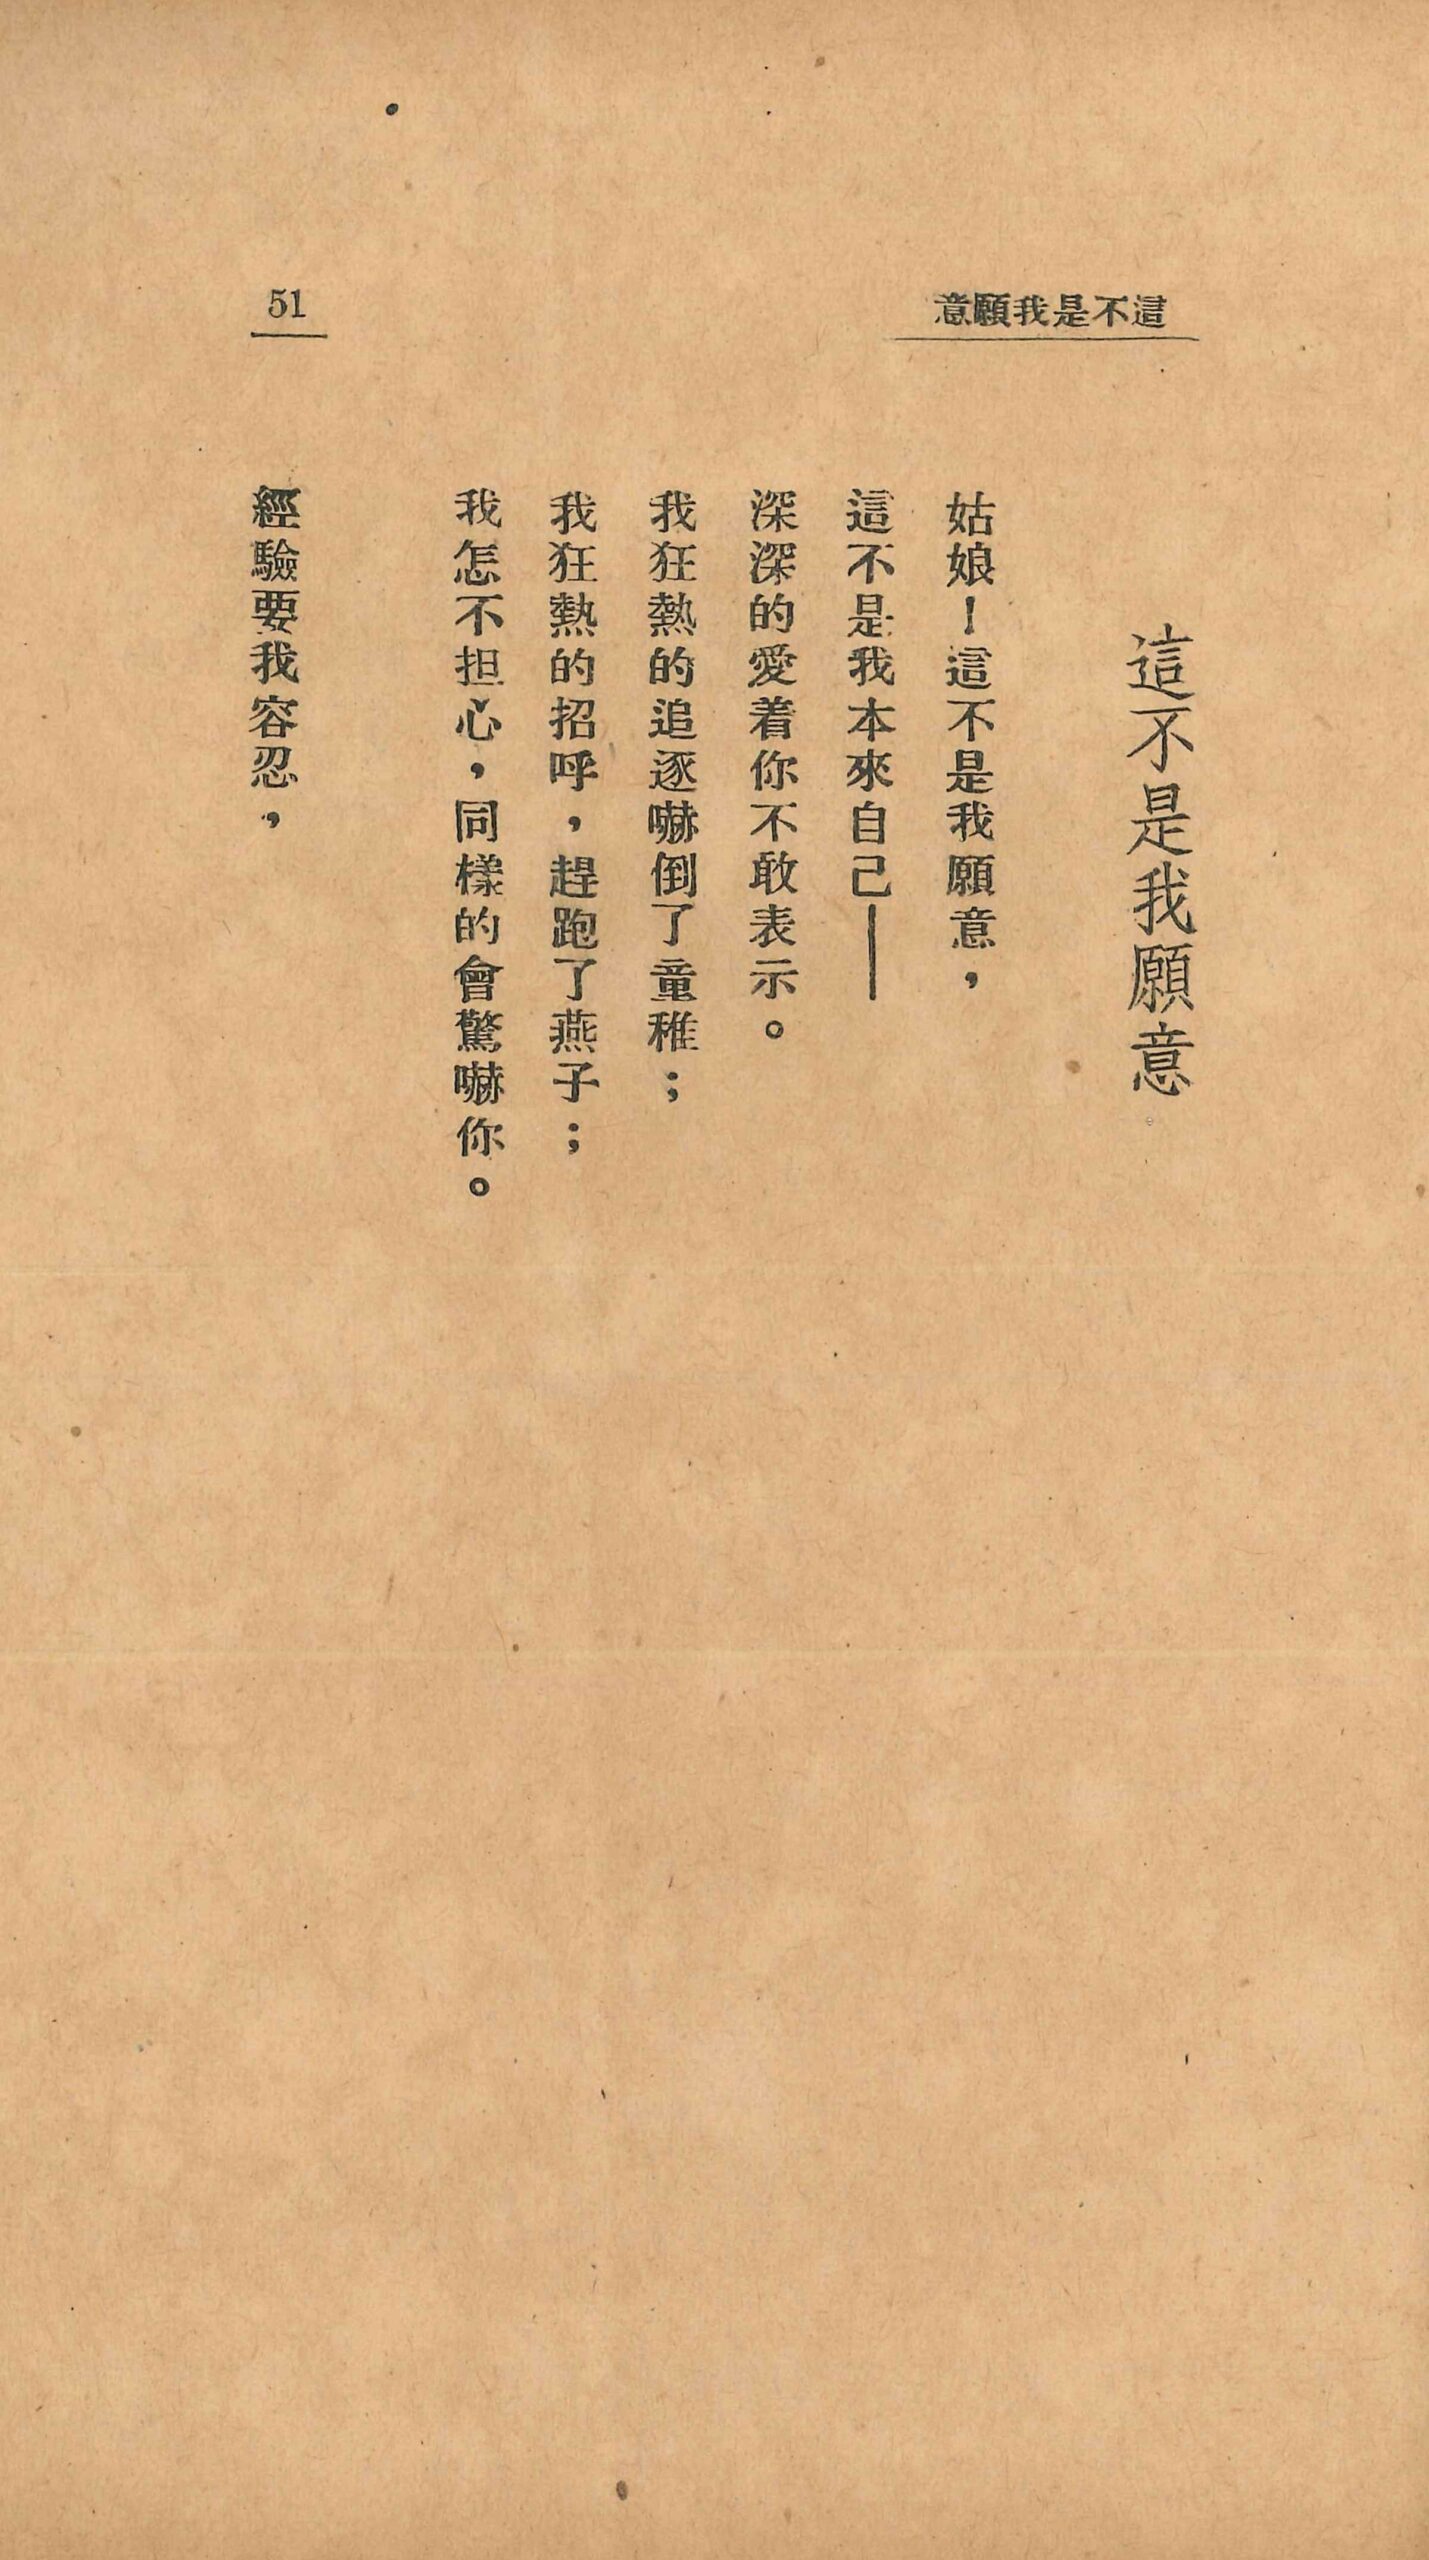 這不是我願意
51
這不是我願意
姑娘！這不是我願意，
這不是我本來自己——
深深的愛着你不敢表示。
我狂熱的追逐嚇倒了童稚；
我狂熱的招呼，趕跑了燕子；
我怎不担心，同樣的會驚嚇你。
經驗要我容忍，